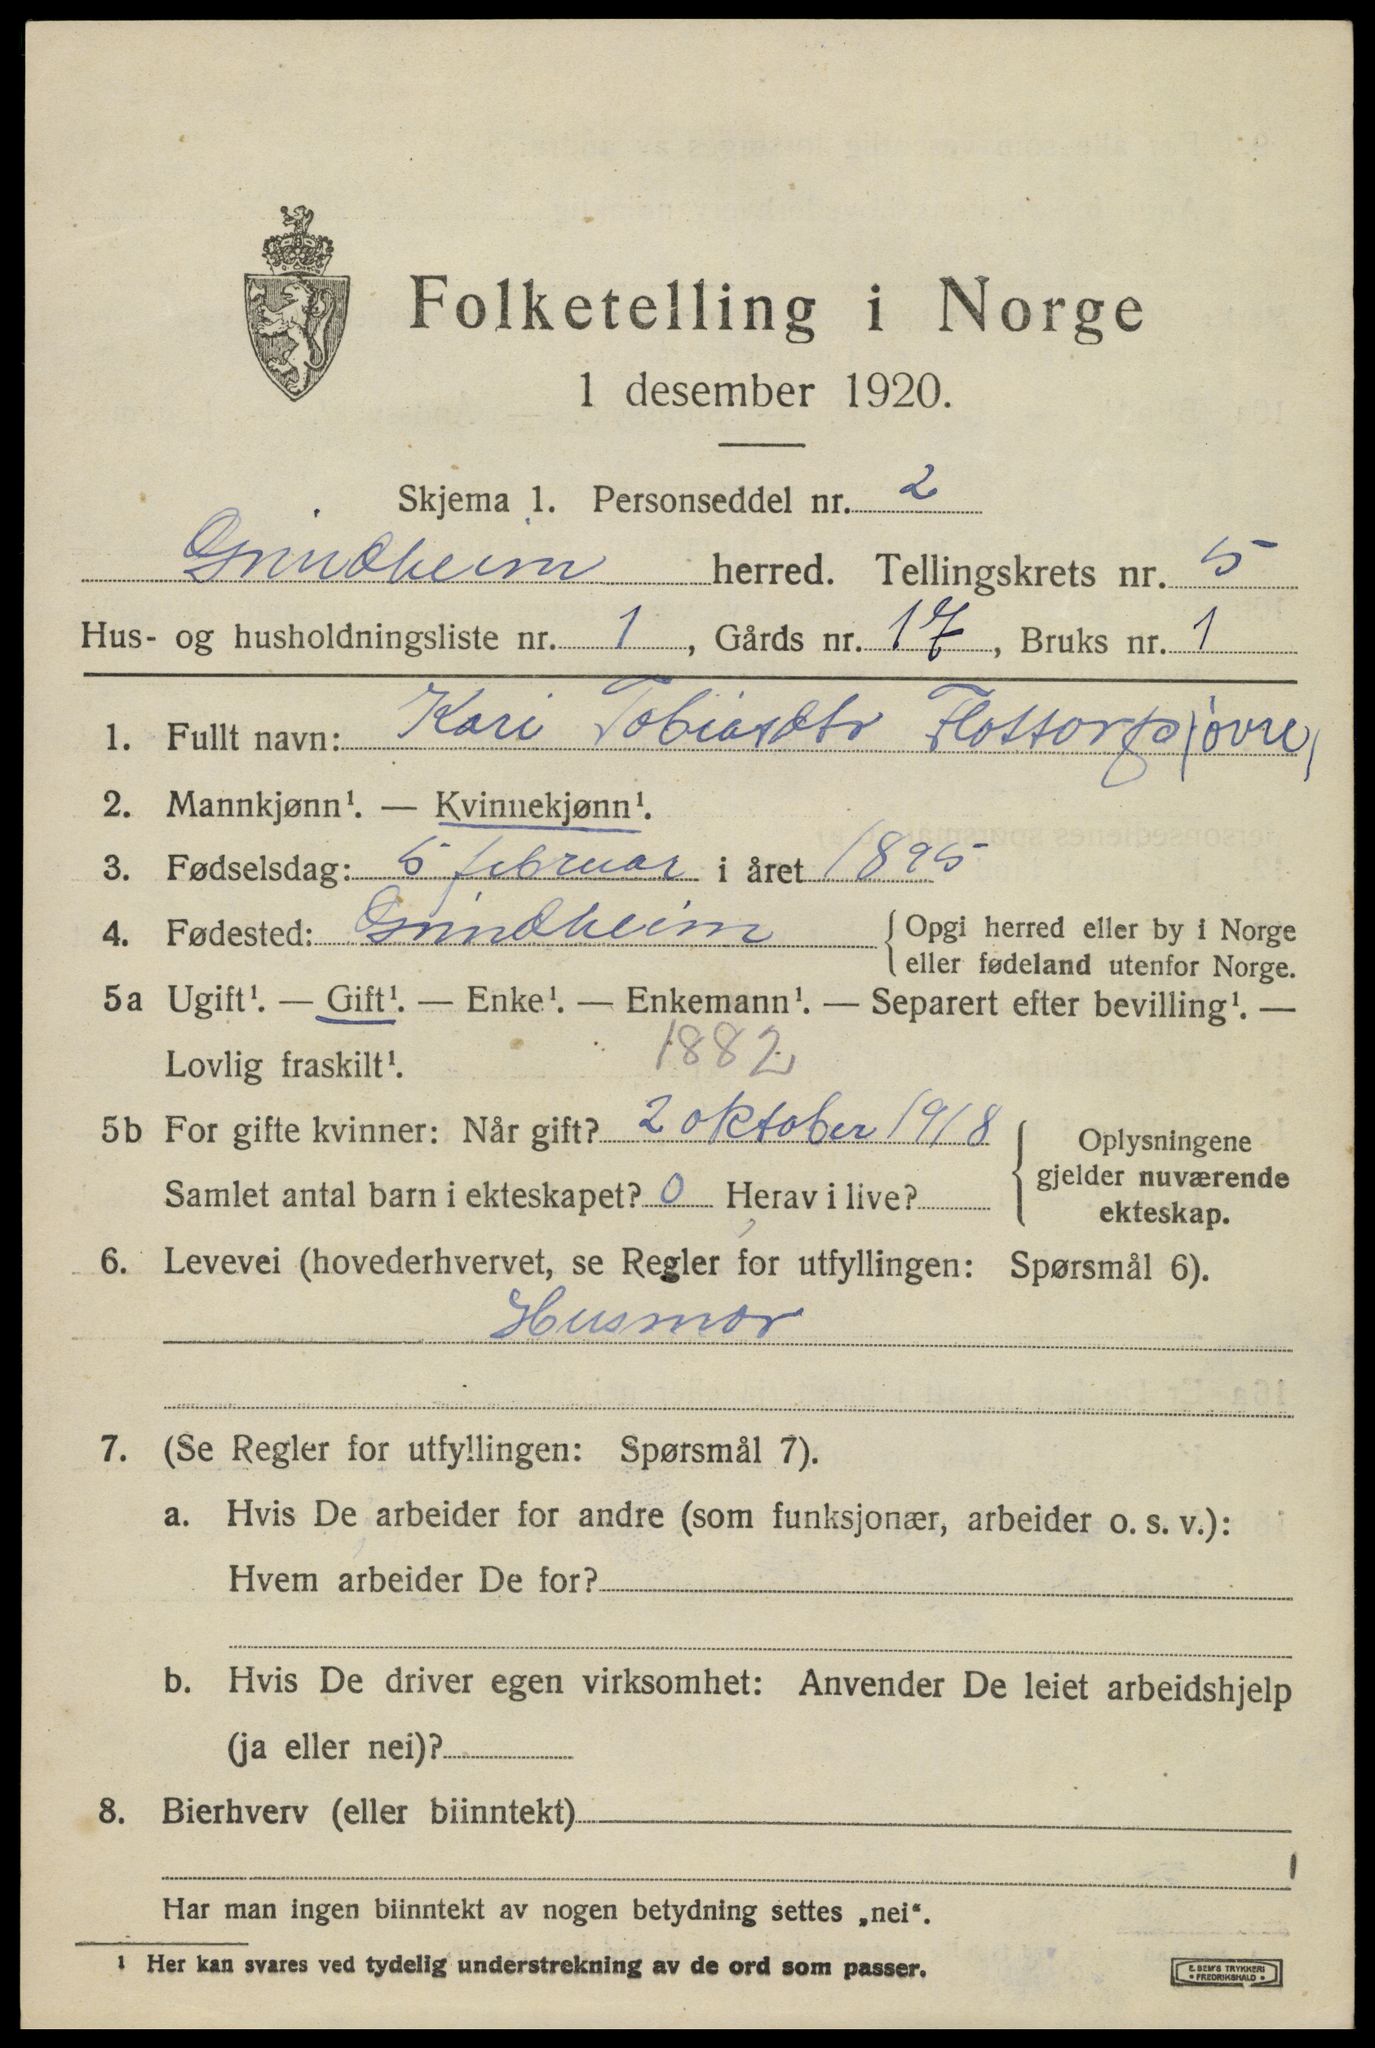 Folketelling i Norge
1 desember 1920.
Skjema 1. Personseddel nr. 2
Grindheim herred. Tellingskrets nr. 5
Hus- og husholdningsliste nr. 1, Gårds nr. 17, Bruks nr. 1
1. Fullt navn: Kari Tobiasdtr Flottorp (øvre)
2. Mannkjønn¹. — Kvinnekjønn¹.
3. Fødselsdag: 5 februar i året 1895
4. Fødested: Grindheim { Opgi herred eller by i Norge
eller fødeland utenfor Norge.
5a Ugift¹. — Gift¹. — Enke¹. — Enkemann¹. — Separert efter bevilling¹. —
Lovlig fraskilt¹. 1882
5b For gifte kvinner: Når gift? 2 oktober 1918
Samlet antal barn i ekteskapet? 0 Herav i live?
{ Oplysningene
gjelder nuværende
ekteskap.
6. Levevei (hovederhvervet, se Regler for utfyllingen: Spørsmål 6).
Husmor
7. (Se Regler for utfyllingen: Spørsmål 7).
a. Hvis De arbeider for andre (som funksjonær, arbeider o. s. v.):
Hvem arbeider De for?
b. Hvis De driver egen virksomhet: Anvender De leiet arbeidshjelp
(ja eller nei)?
8. Bierhverv (eller biinntekt)
Har man ingen biinntekt av nogen betydning settes „nei“.
1 Her kan svares ved tydelig understrekning av de ord som passer.
E. SEM'S TRYKKERI
• FREDRIKSHALD •